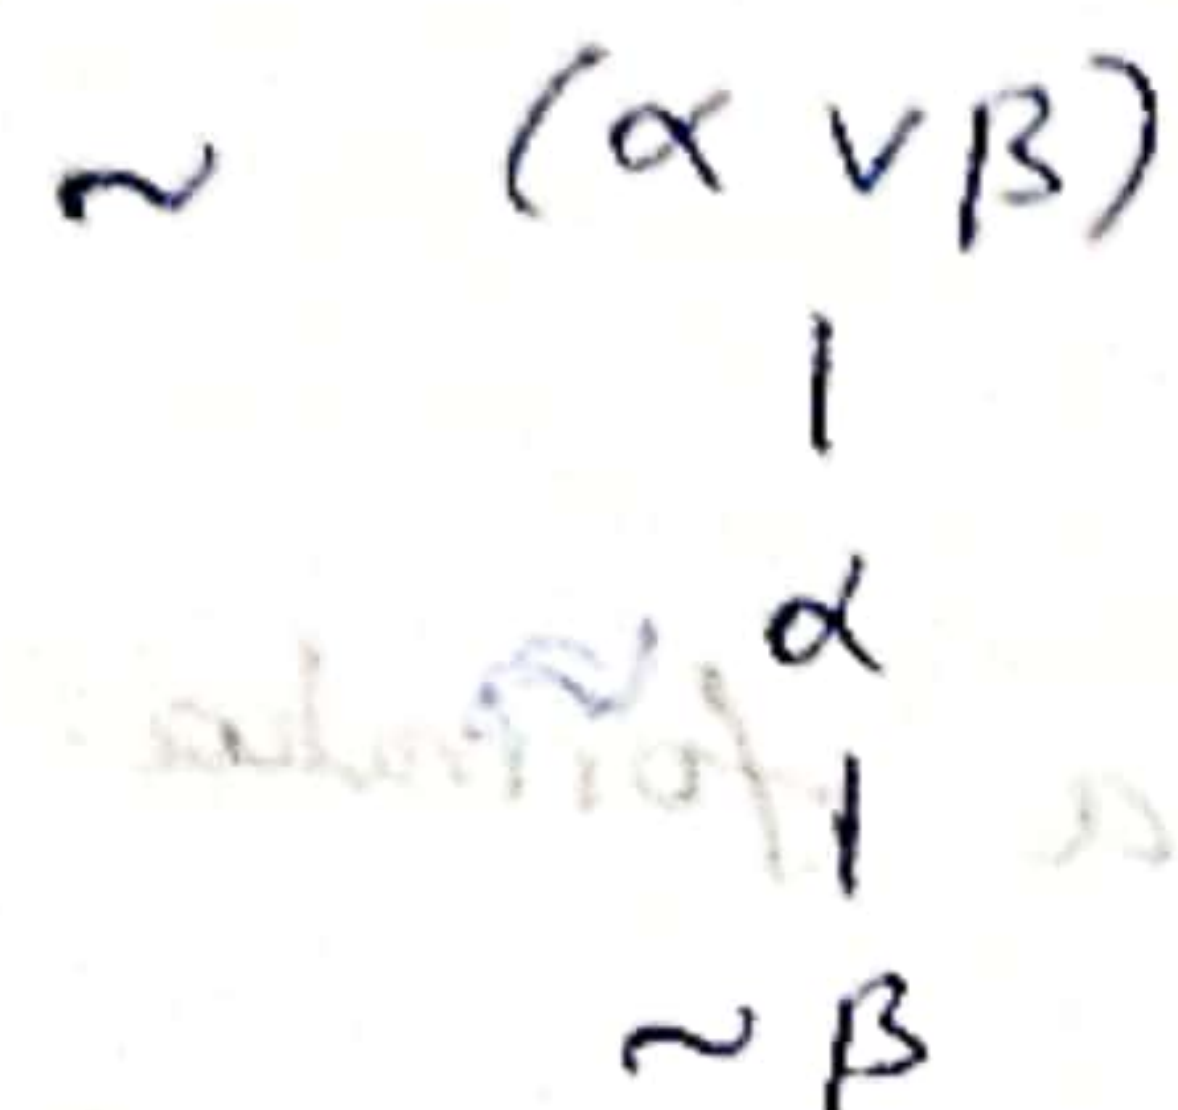 ~ (α ∨ β)
|
~ α
|
~ β